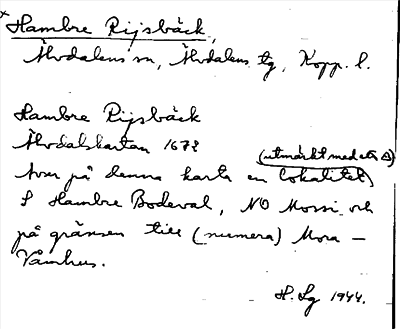 * Hambre Rijsbäck,
Älvdalens sn, Älvdalens tg, Kopp. l.
Hambre Rijsbäck
Älvdalskartan 1678
(utmärkt med ett △)
Avser på denna karta en lokalitet
S Hambre Bodeval, NO Mossi och
på gränsen till (numera) Mora –
Våmhus.
H. Lg 1944.